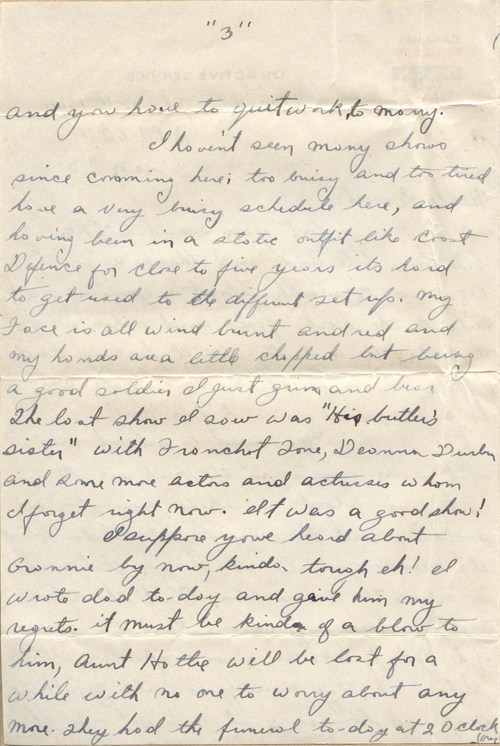 "3"
and you have to quit work to marry.
I haven't seen many shows
since comming here; too buisy and too tired
have a very buisy schedule here, and
having been in a static outfit like Coast
Defence for close to five years its hard
to get used to the different set up. My
Face is all wind burnt and red and
my hands are a little chapped but being
a good soldier I just grin and bear
The last show I saw was "His butler's
sister" with Franchot Tone, Deanna Durbin
and some more actors and actresses whom
I forget right now. It was a good show!
I suppose youve heard about
Grannie by now, kinda tough eh! I
wrote dad to-day and gave him my
regrets. it must be kinda of a blow to
him, Aunt Hattie will be lost for a
while with no one to worry about any
more. They had the funeral to-day at 2 O clock